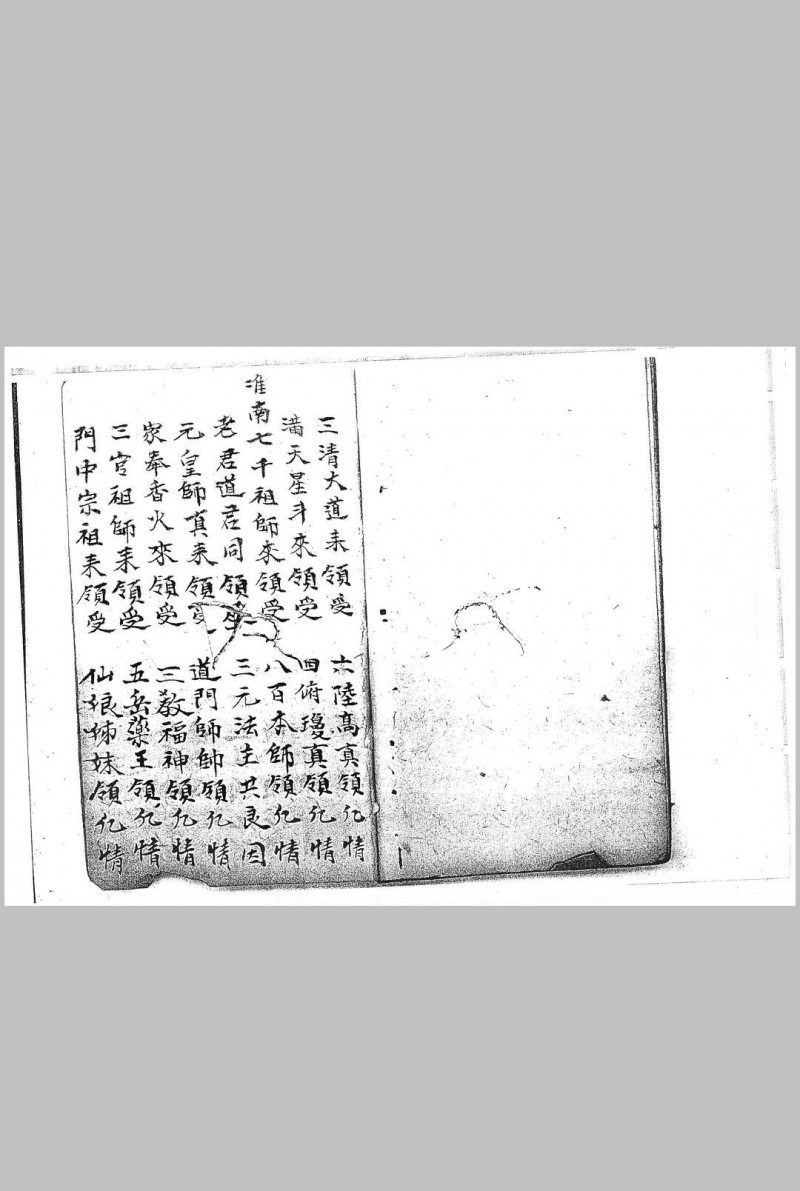 三清大道来領受 六陸髙真領亿情
满天星斗來領受 四俯瓊真領亿情
淮南七千祖師來領受 八百本師領亿情
老君道君同領受 三元法主共良因
元皇師真来領受 道門師帥領亿情
家奉香火來領受 三教福神領亿情
三官祖師来領受 五岳藥王領亿情
門中宗祖来領受 仙娘姊妹領亿情